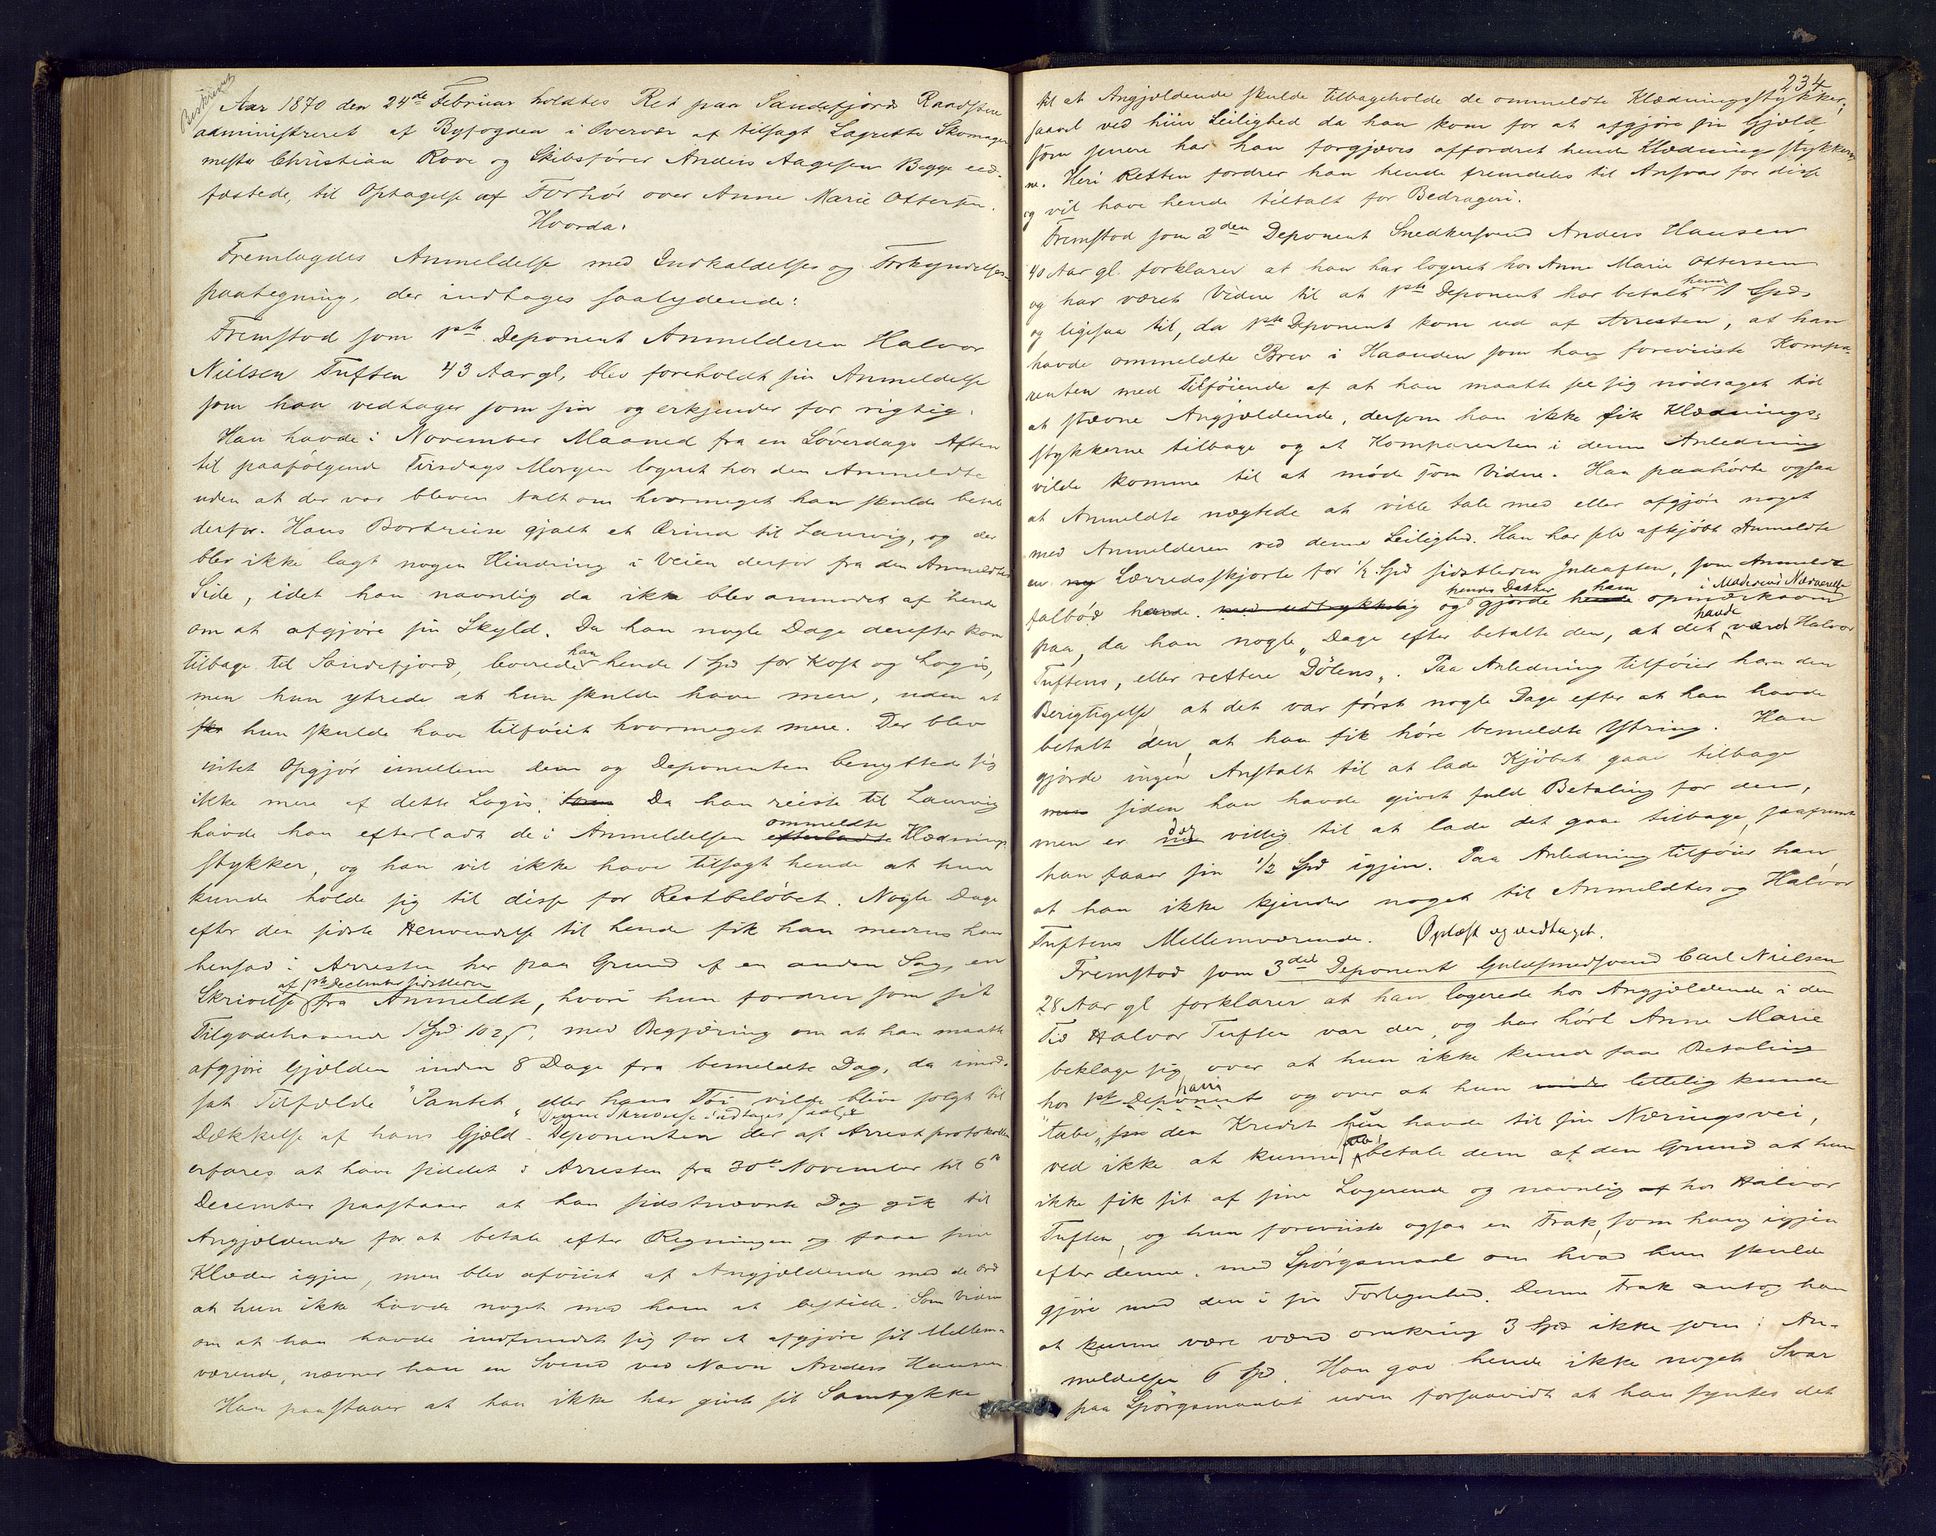 Beskrevet
Aar 1870 den 24de Februar holdtes Ret paa Sandefjords Raadstue
administreret af Byfogden i Overvær af tilsagt Lagrette Skomager
mester Christian Rove og Skibsfører Anders Aagesen Begge eed-
fæstede, til Optagelse af Forhør over Anne Marie Ottersen.
Hvorda:
Fremlagdes Anmeldelse med Indkaldelses og Forkyndelses-
paategning, der indtages saalydende:
Fremstod som 1ste Deponent Anmelderen Halvor
Nielsen Tuften 43 Aar gl, blev foreholdt sin Anmeldelse
som han vedtager som sin og erkjender for rigtig.
Han havde i November Maaned fra en Løverdags Aften
til paafølgende Tirsdags Morgen logeret hos den Anmeldte
uden at der var bleven talt om hvormeget han skulde betale
derfor. Hans Bortreise gjalt et Ærind til Laurvig, og der
blev ikke lagt nogen Hindring i Veien derfor fra den Anmeldtes
Side, idet han navnlig da ikke blev anmodet af hende
om at afgjøre sin Skyld. Da han nogle Dage derefter kom
tilbage til Sandefjord, leverede han hende 1 Spd for Kost og Logis,
men hun ytrede at hun skulde have mere, uden at
hun skulde have tilføiet hvormeget mere. Der blev
intet Opgjør imellem dem og Deponenten benytted sig
ikke mere af dette Logis. Da han reiste til Laurvig
havde han efterladt de i Anmeldelsen ommeldte efterladte Klædnings-
stykker, og han vil ikke have tilsagt hende at hun
kunde holde sig til disse for Restbeløbet. Nogle Dage
efter den sidste Henvendelse til hende fik han medens han
hensad i Arresten her paa Grund af en anden Sag, en
Skrivelse af 1ste December sidstleden fra Anmeldte, hvori hun fordrer som sit
Tilgodehavende 1 Spd 102 s, med Begjæring om at han maatte
afgjøre Gjælden inden 8 Dage fra bemeldte Dag, da i mod-
sat Tilfælde "Pantet" eller hans Tøi vilde blive solgt til
Dækkelse af hans Gjæld. Denne Skrivelse indtages saal: Deponenten der af Arrestprotokollen
erfares at have siddet i Arresten fra 30te November til 6te
December paastaaer at han sidstnævnte Dag gik til
Angjældende for at betale efter Regningen og faae sine
Klæder igjen, men blev afviist af Angjældende med de Ord
at hun ikke havde noget med ham at bestille. Som Vidne
om at han havde indfundet sig for at afgjøre sit Mellem-
værende, nævner han en Svend ved Navn Anders Hansen.
Han paastaaer at han ikke har givet sit Samtykke
234
til at Angjældende skulde tilbageholde de ommeldte Klædningsstykker,
saavel ved hiin Leilighed da han kom for at afgjøre sin Gjæld,
som senere har han forgjæves affordret hende Klædningsstykker-
ne. Heri Retten fordrer han hende fremdeles til Ansvar for disse
og vil have hende tiltalt for Bedrageri.
Fremstod som 2den Deponent Snedkersvend Anders Hansen
40 Aar gl. forklarer at han har logeret hos Anne Marie Ottersen
og har været Vidne til at 1ste Deponent har betalt hende 1 Spd
og ligesaa til, da 1ste Deponent kom ud af Arresten, at han
havde ommeldte Brev i Haanden som han foreviiste Kompa-
renten med Tilføiende af at han maatte see sig nødsaget til
at stævne Angjældende, dersom han ikke fik Klædnings-
stykkerne tilbage og at Komparenten i denne Anledning
vilde komme til at møde som Vidne. Han paahørte ogsaa
at Anmeldte nægtede at ville tale med eller afgjøre noget
med Anmelderen ved denne Leilighed. Han har selv afkjøbt Anmeldte
en ny Lærredsskjorte for 1/2 Spd sidstleden Juleaften, som Anmeldte
falbød hende med udtrykkelig og hendes Datter gjorde ham hende opmærksom i Moderens Nærværelse
paa, da han nogle Dage efter betalte den, at det havde været Halvor
Tuftens, eller rettere "Dølens". Paa Anledning tilføier han den
Berigtigelse at det var først nogle Dage efter at han havde
betalt den, at han fik høre bemeldte Ytring. Han
gjorde ingen Anstalt til at lade Kjøbet gaae tilbage
men siden han havde givet fuld Betaling for den,
men er dog villig til at lade det gaae tilbage, saafremt
han faaer sin 1/2 Spd igjen. Paa Anledning tilføier han
at han ikke kjender noget til Anmeldtes og Halvor
Tuftens Mellemværende. Oplæst og vedtaget.
Fremstod som 3die Deponent Guldsmedsvend Carl Nielsen
28 Aar gl forklarer at han logerede hos Angjældende i den
Tid Halvor Tuften var der, og har hørt Anne Marie
beklage sig over at hun ikke kunde faae Betaling
hos 1ste Deponent ham og over at hun lettelig kunde
"tabe" den Kredit hun havde til sin Næringsvei,
ved ikke at kunne betale dem af den Grund at hun
ikke fik sit af sine Logerende og navnlig af hos Halvor
Tuften, og hun foreviiste ogsaa en Frak, som hang igjen
efter denne, med Spørgsmaal om hvad hun skulde
gjøre med den i sin Forlegenhed. Denne Frak antog han
at kunne være værd omkring 3 Spd ikke som i An-
meldelsen 6 Spd. Han gav hende ikke noget Svar
paa Spørgsmaalet uden forsaavidt at han syntes det